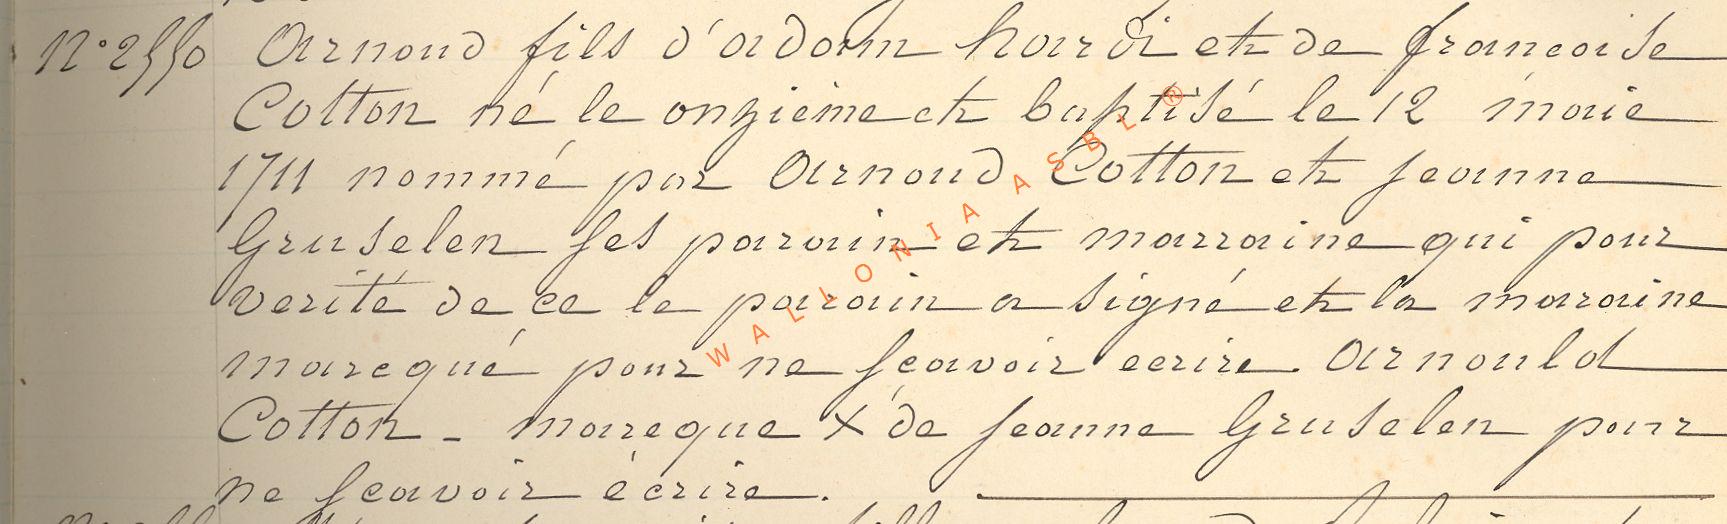 N° 2550 Arnoud fils d'adam hardi et de francoise
Cotton né le onziéme et baptisé le 12 maie
1711 nommé par Arnoud Cotton et jeanne
Gruselen ses parain et marraine qui pour
verité de ce le parain a signé et la maraine
marcqué pour ne sçavoir ecrire. Arnould
Cotton - marcque X de jeanne Gruselen pour
ne sçavoir écrire.
WALLONIA ASBL ®